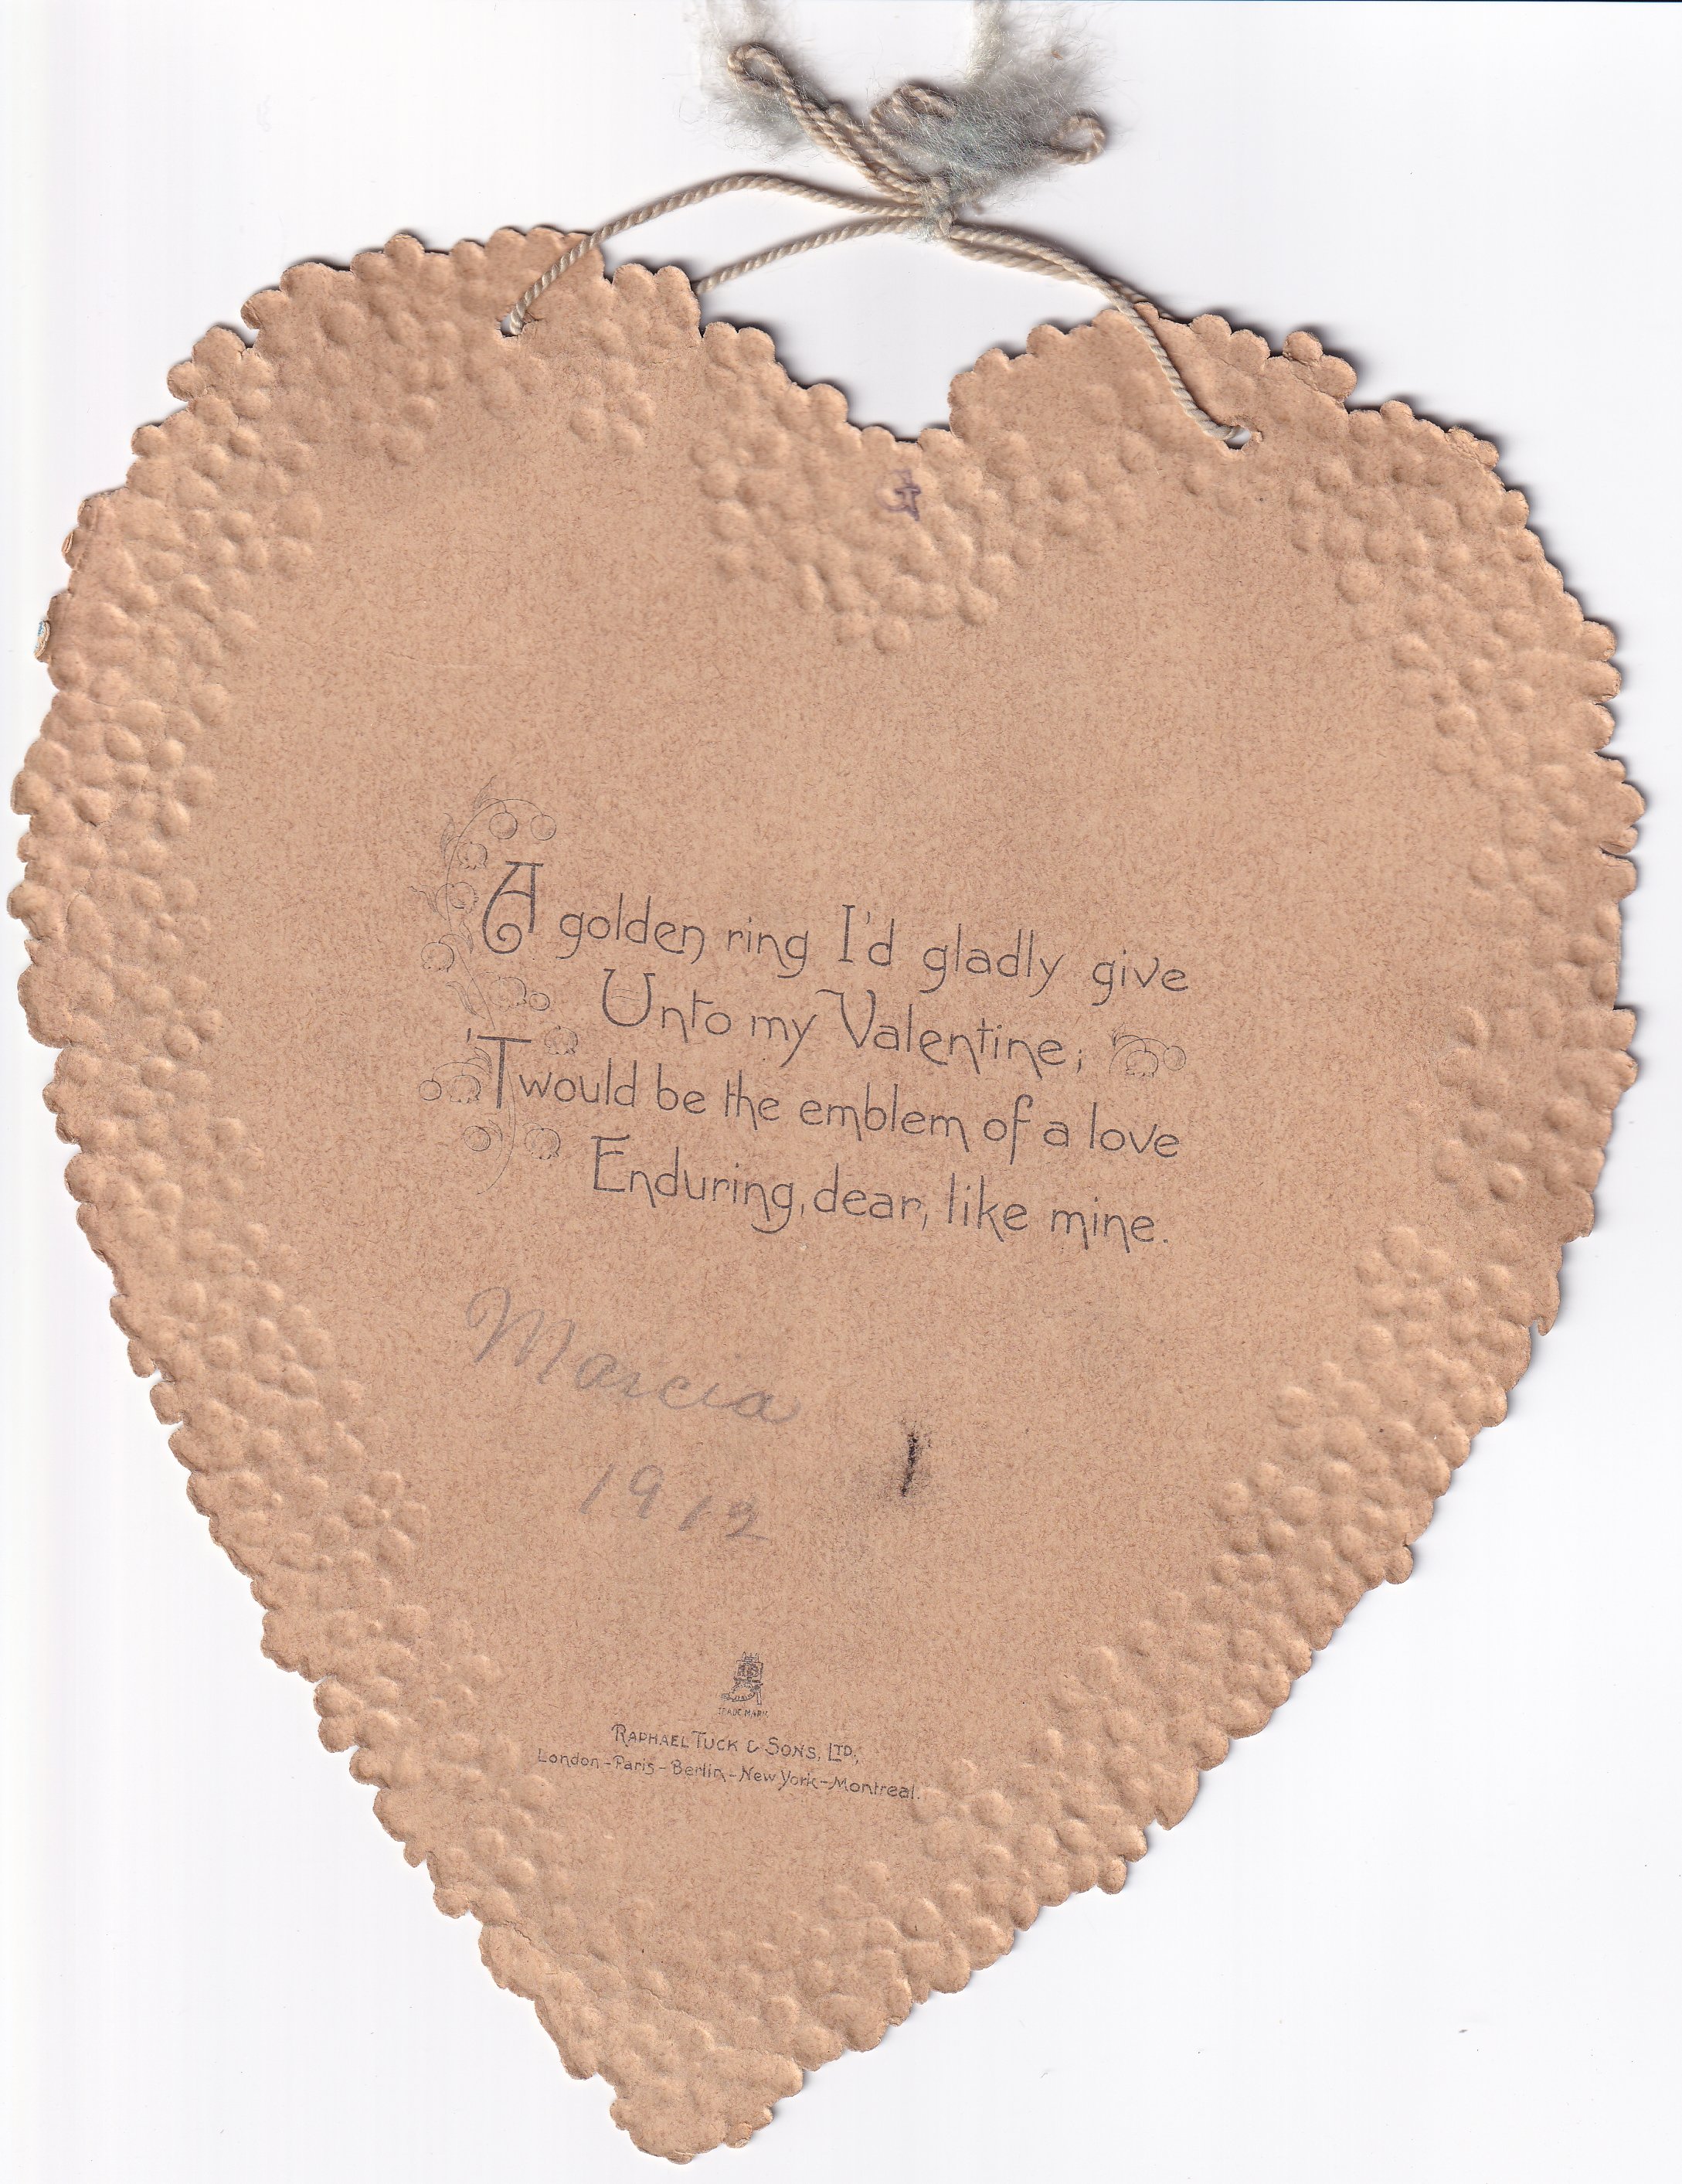 A golden ring I'd gladly give
Unto my Valentine;
'Twould be the emblem of a love
Enduring, dear, like mine.
Marcia
1912
TRADE MARK
RAPHAEL TUCK & SONS, LTD,
London-Paris-Berlin-New York-Montreal.